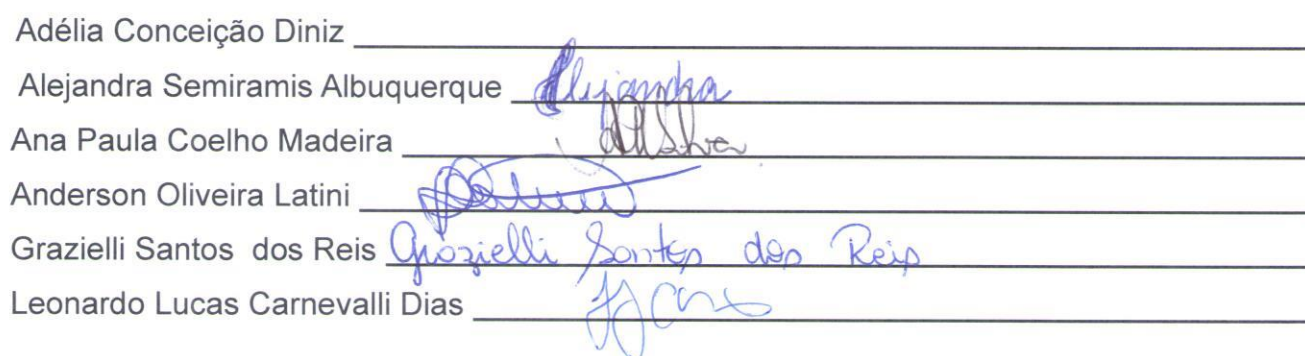 Adélia Conceição Diniz
Alejandra Semiramis Albuquerque Alejandra
Ana Paula Coelho Madeira
Anderson Oliveira Latini
Grazielli Santos dos Reis Grazielli Santos dos Reis
Leonardo Lucas Carnevalli Dias